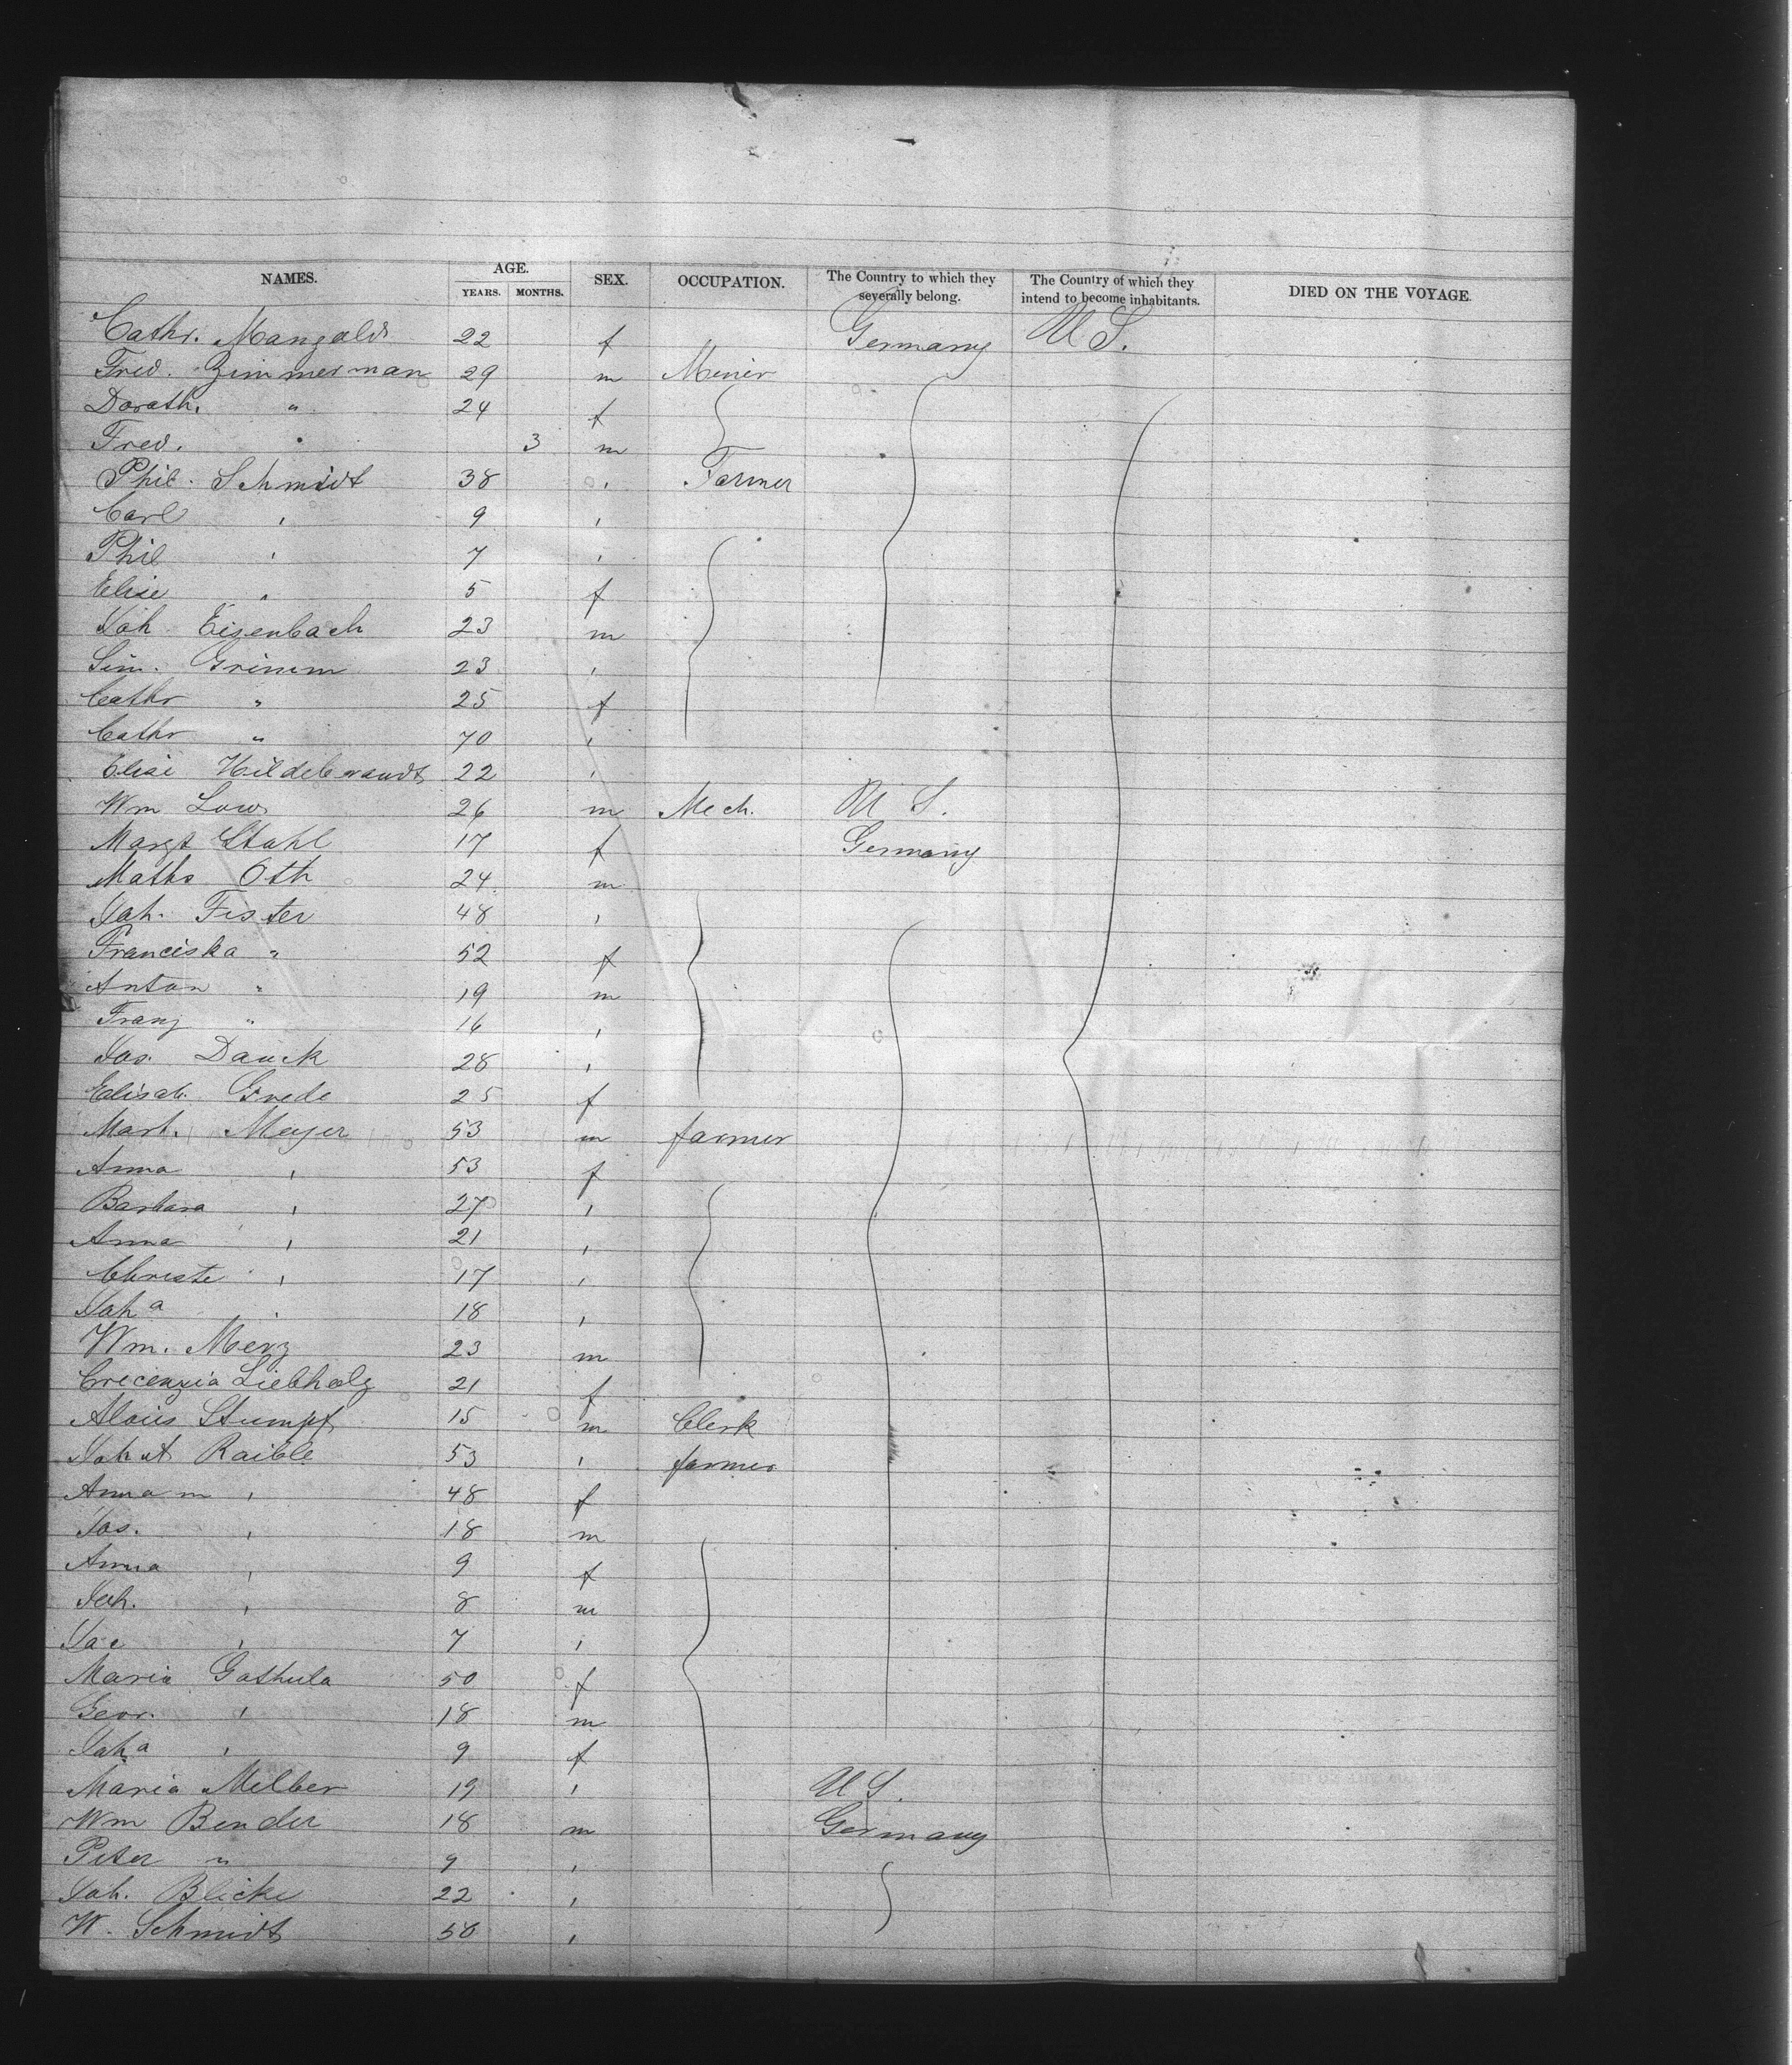 NAMES. AGE. SEX. OCCUPATION. The Country to which they severally belong. The Country of which they intend to become inhabitants. DIED ON THE VOYAGE.
YEARS. MONTHS.
Cathr. Mangold 22 f Germany U S.
Fred. Zimmerman 29 m Minir
Dorath. " 24 f
Fred. " 3 m
Phil. Schmidt 38 " Farmer
Carl " 9 "
Phil " 7 "
Elise " 5 f
Joh Eisenbach 23 m
Sim. Grimm 23 "
Cathr " 25 f
Cathr " 70 "
Elise Hildebrandt 22 "
Wm Low 26 m Mech. U S.
Margt Stahl 17 f Germany
Maths Oth 24 m
Joh. Fister 48 "
Franciska " 52 f
Anton " 19 m
Franz " 16 "
Jos. Dauck 28 "
Elisab. Grede 25 f
Mart. Meyer 53 m farmer
Anna " 53 f
Barbara " 27 "
Anna " 21 "
Christe " 17 "
Joha " 18 "
Wm. Merz 23 m
Crecenzia Liebholz 21 f
Alois Stumpf 15 m Clerk
Raible 53 " farmer
Anna m " 48 f
Jos. " 18 m
Anna " 9 f
Joh. " 8 m
Jac " 7 "
Maria Gathula 50 f
Geor. " 18 m
Joha " 9 f
Maria Melber 19 " U S.
Wm Bender 18 m Germany
Peter " 9 "
Joh. Blicke 22 "
W. Schmidt 50 "